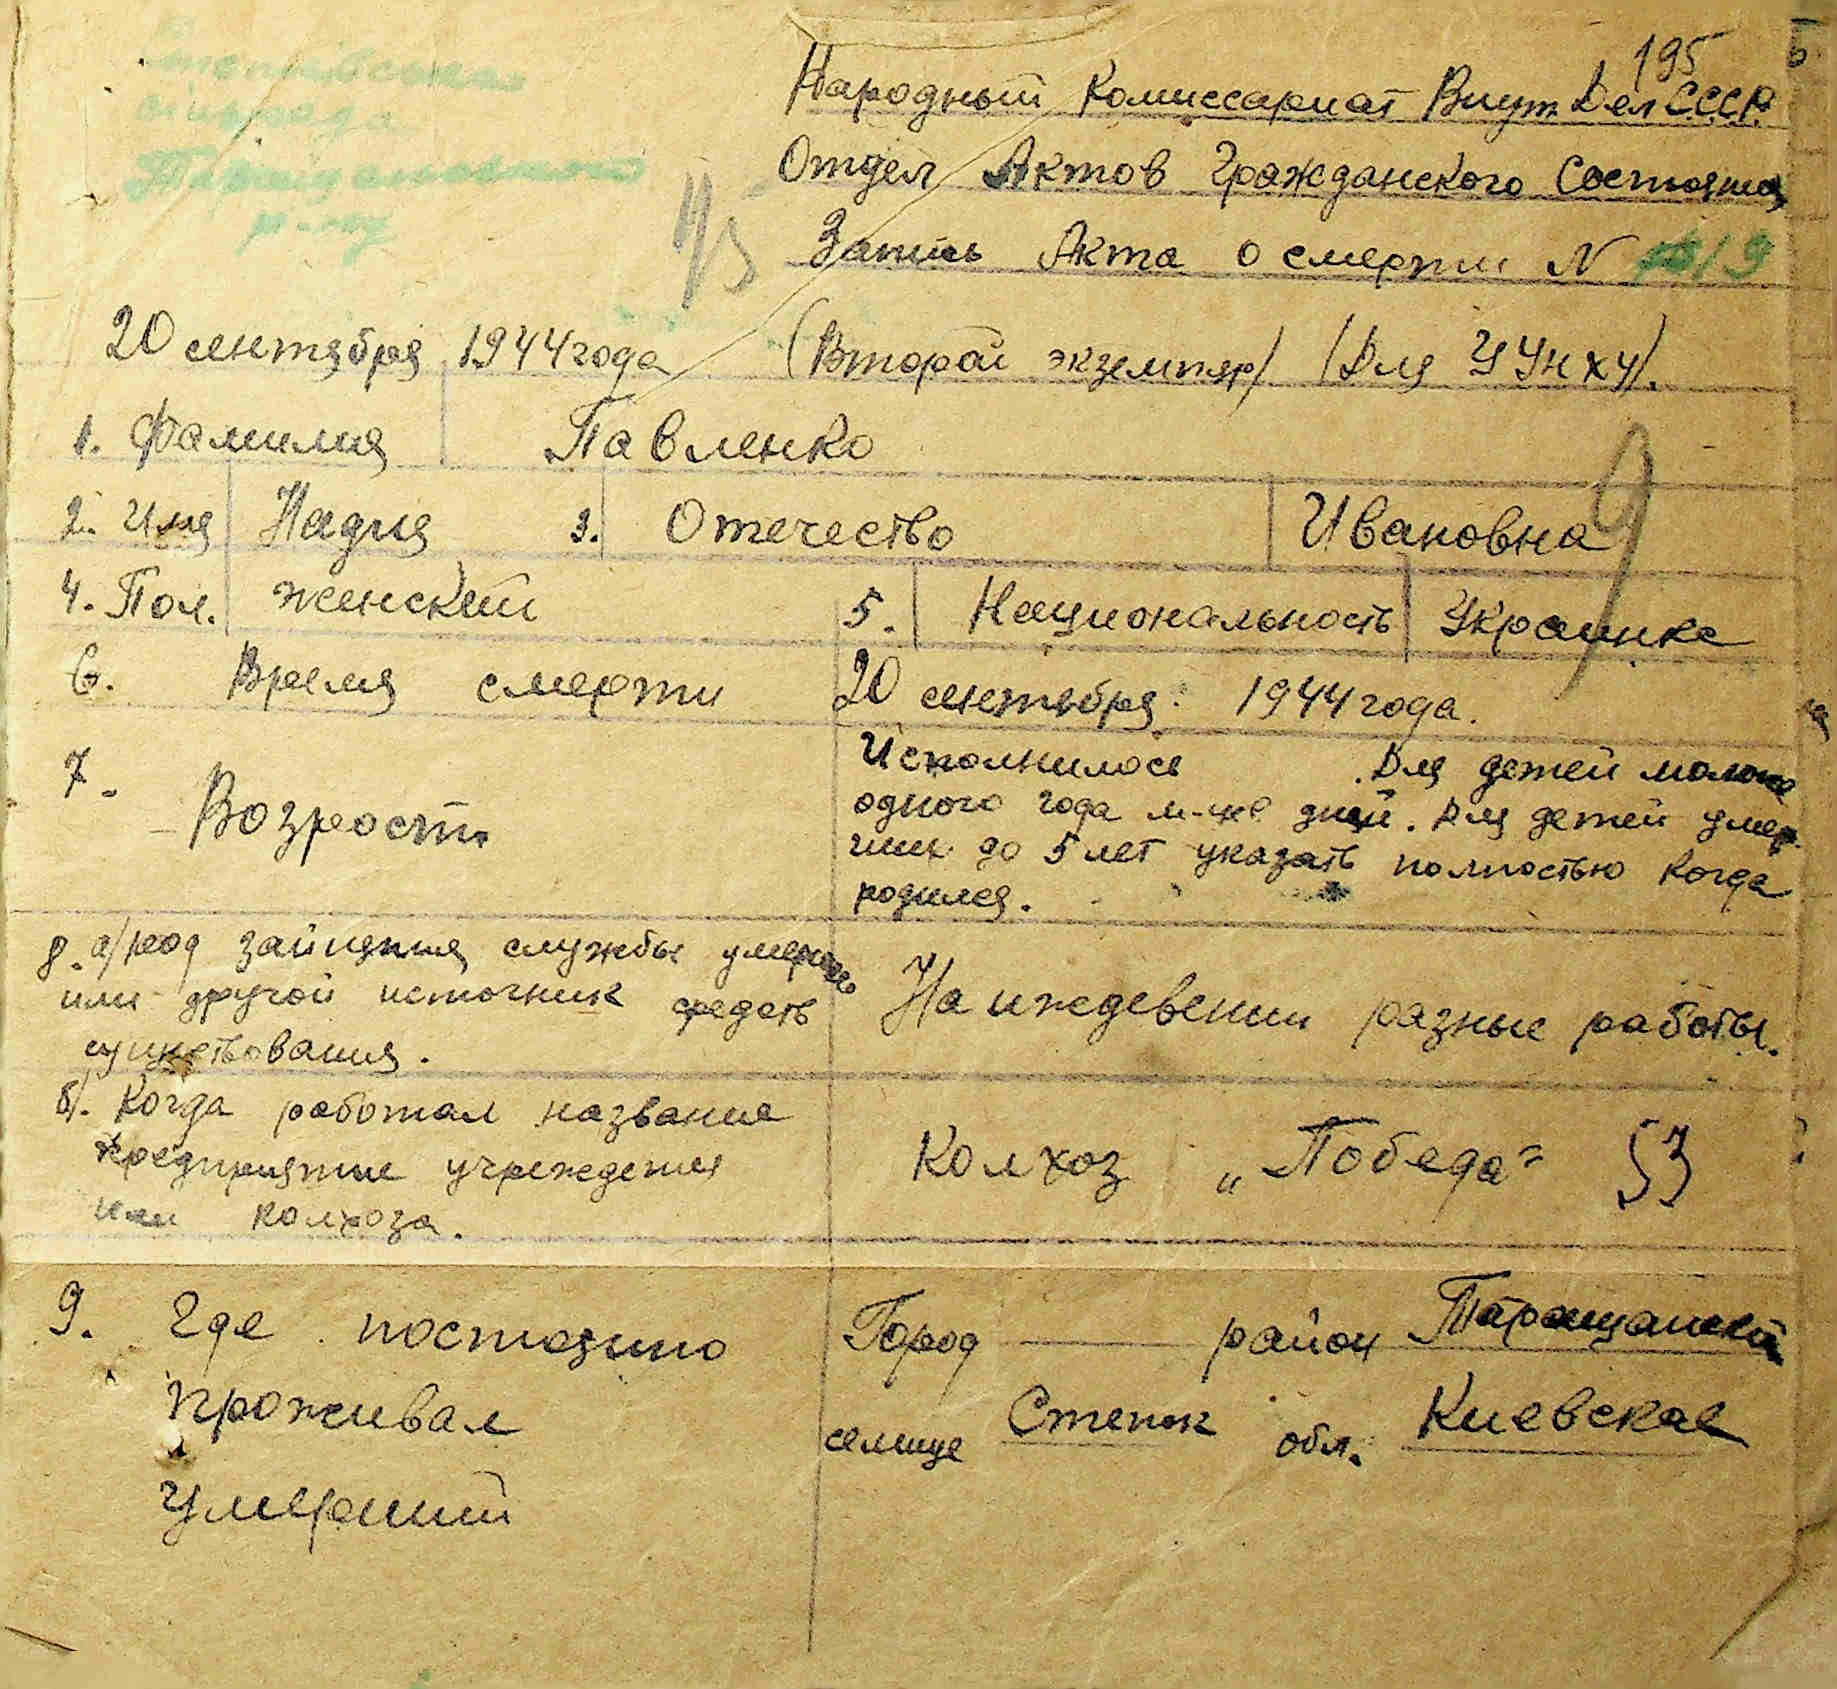 195
Народный Комиссариат Внут Дел СССР
Отдел Актов Гражданского Состояния
Запись Акта о смерти N 19
20 сентября 1944 года (Второй экземпяр) (Для УУНХУ).
1. Фамилия Павленко
2. Имя Надия 3. Отечество Ивановна
4. Пол. женский 5. Национальность Украинка
6. Время смерти 20 сентября 1944 года.
7. Возраст
Исполнилось Для детей моложе
одного года м-це дней. Для детей умер
ших до 5 лет указать полностью когда
родился.
8. а) род занятия службы умершего
или другой источник средств
существования.
На иждевении разные работы.
б). Когда работал название
предприятие учреждения
или колхоза.
Колхоз „Победа" 53
9. Где постоянно
проживал
умерший
Город район Таращанский
селище Степок обл. Киевская
9